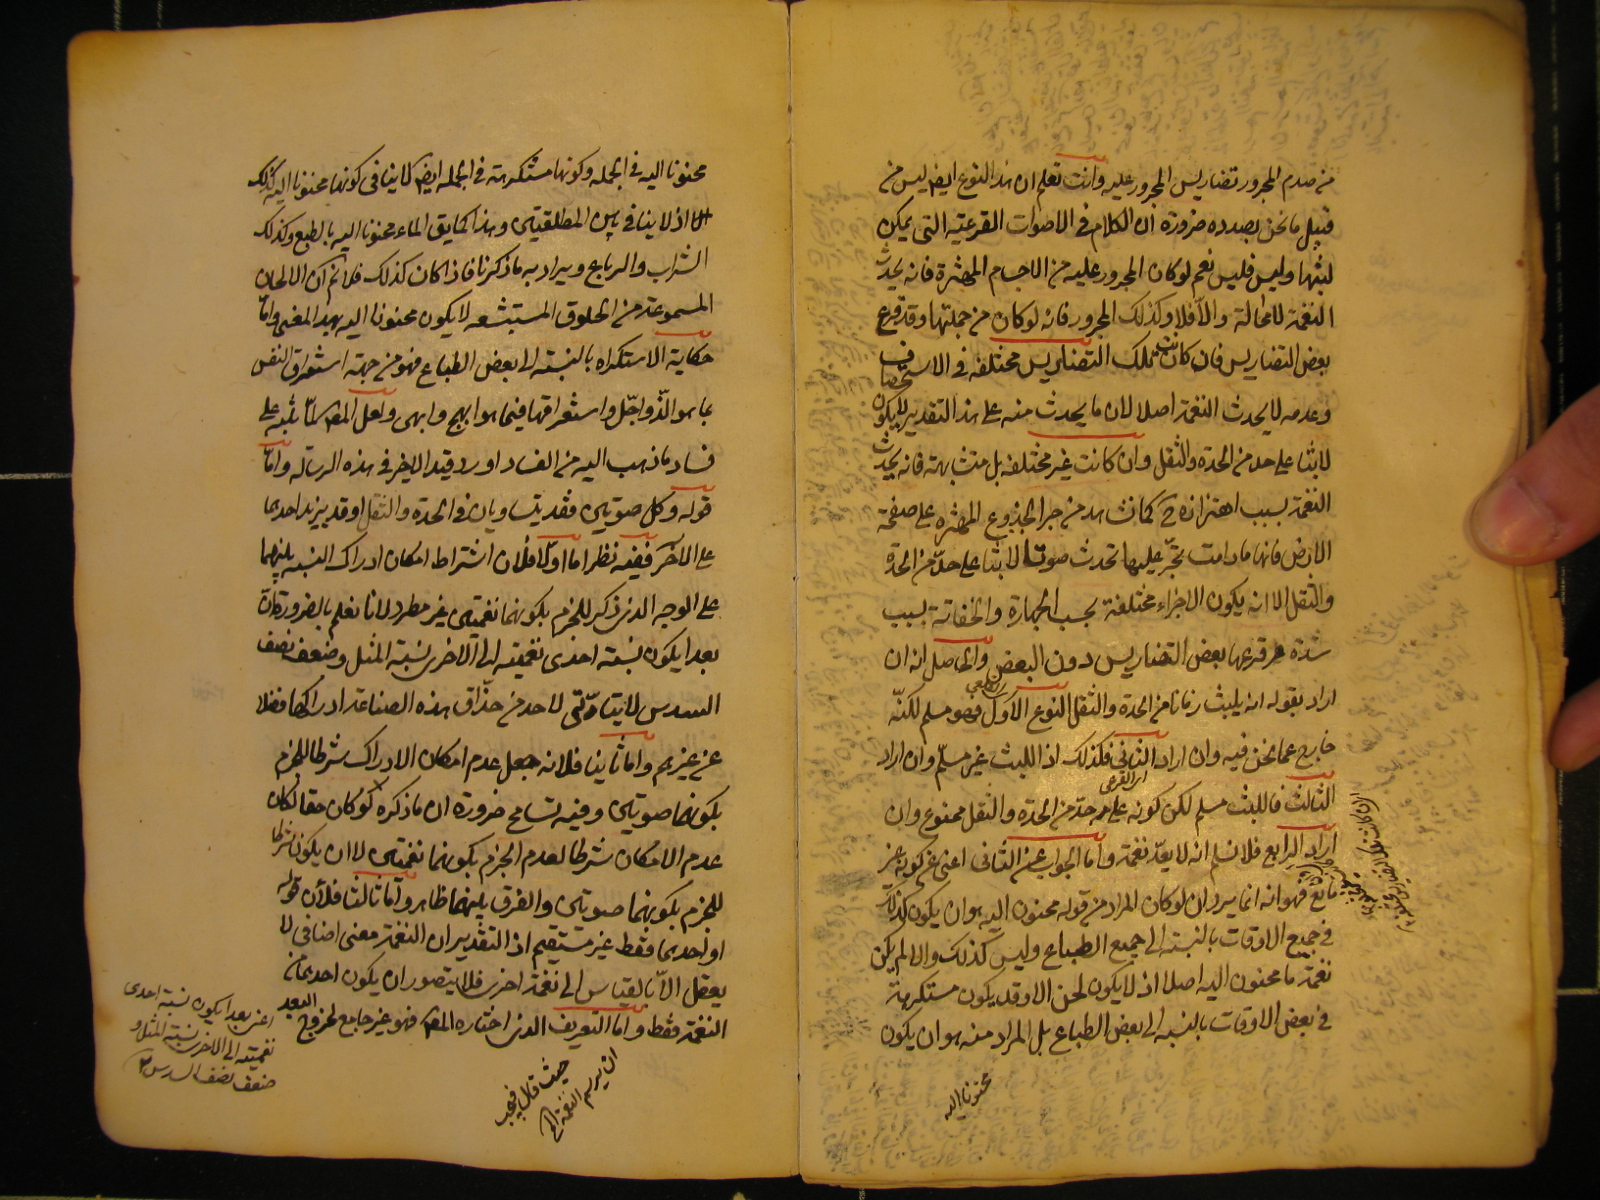 من صدم المجرور تضاريس المجرور عليه وانت تعلم ان هذا النوع ايضا ليس من
قبيل ما نحن بصدده ضرورة ان الكلام في الاصوات القرعية التي يمكن
لبثها وليس فليس نعم لو كان المجرور عليه من الاجسام المهتزة فانه يحدث
النغمة لا محالة والا فلا وكذلك المجرور فانه لو كان من جملتها وقد قرع
بعض التضاريس فان كانت تلك التضاريس مختلفه في الاستحصاف
وعدمه لا يحدث النغمة اصلا لان ما يحدث منه على هذا التقدير لا يكون
لابثا على حد من الحدة والثقل وان كانت غير مختلفه بل متشابهة فانه يحدث
النغمة بسبب اهتزازه ح كما نشاهد من جر الجذوع المهتزة على صفحة
الارض فانها ما دامت تجر عليها تحدث صوتا لابثا على حد من الحدة
والثقل الا انه يكون الاجزاء مختلفة بحسب الجهارة والخفاتة بسبب
شدة قرعها بعض التضاريس دون البعض والحاصل انه ان
اراد بقوله انه يلبث زمانا من الحدة والثقل النوع الاول فهو مسلم لكنه
خارج عما نحن فيه وان اراد الثاني فكذلك اذ اللبث غير مسلم وان اراد
الثالث فاللبث مسلم لكن كونه على حد من الحدة والثقل ممنوع وان
اراد الرابع فلا نسلم انه لا يعد نغمة واما الجواب عن الثاني اعني عن كونه غير
مانع فهو انه انما يرد ان لو كان المراد من قوله محنون اليه هو ان يكون كذلك
في جميع الاوقات بالنسبة الى جميع الطباع وليس كذلك والا لم يكن
نغمة ما محنون اليه اصلا اذ لا يكون لحن الا وقد يكون مستكرهة
في بعض الاوقات بالنسبه الى بعض الطباع بل المراد منه هو ان يكون
محنونا اليه
محنونا اليه في الجمله وكونها مستكرهة في الجمله ايضا لا ينافي كونها محنونا اليه كذلك
اذ لا ينافي بين المطلقتين وهذا كما يق الماء محنونا اليه بالطبع وكذلك
الشراب والرباع ويراد به ما ذكرنا فاذا كان كذلك فلا نم ان الالحان
المسموعة من الحلوق المستبشعه لا يكون محنونا اليه بهذا المعنى واما
حكاية الاستكراه بالنسبة الى بعض الطباع فهو من جهة استغراق النفس
بما هو الذ واجل واستغراقها فيما هو ابهج وابهى ولعل المص لما تنبه على
فساد ما ذهب اليه من الفساد اورد قيد الاخر في هذه الرسالة واما
قوله وكل صوتين فقد يتساويان في الحدة والثقل او قد يزيد احدهما
على الآخر ففيه نظر اما اولا فلان اشتراط امكان ادراك النسبة بينهما
على الوجه الذي ذكر للجزم بكونهما نغمتين غير مطرد لانا نعلم بالضرورة ان
بعدا يكون نسبة احدى نغمتيه الى الاخرى نسبة المثل وضعف نصف
السدس لا يتاتى لاحد من حذاق هذه الصناعة ادراكها فضلا
عن غيرهم واما ثانيا فلانه جعل عدم امكان الادراك شرطا للجزم
بكونهما صوتين وفيه تسامح ضرورة ان ما ذكره لو كان حقا لكان
عدم الامكان شرطا لعدم الجزم بكونهما نغمتين لا ان يكون شرطا
للجزم بكونهما صوتين والفرق بينهما ظاهر واما ثالثا فلان قوله
او احدهما فقط غير مستقيم اذ التقدير ان النغمة معنى اضافي لا
يعقل الا بالقياس الى نغمة اخرى فلا يتصور ان يكون احدهما
النغمة فقط واما التعريف الذي اختاره المص فهو غير جامع لخروج البعد
اعني بعدا يكون نسبة احدى
نغمتيه الى الاخرى نسبة المثل و
ضعف نصف السدس
حيث قال فيجب
ان يرسم النغمة الخ